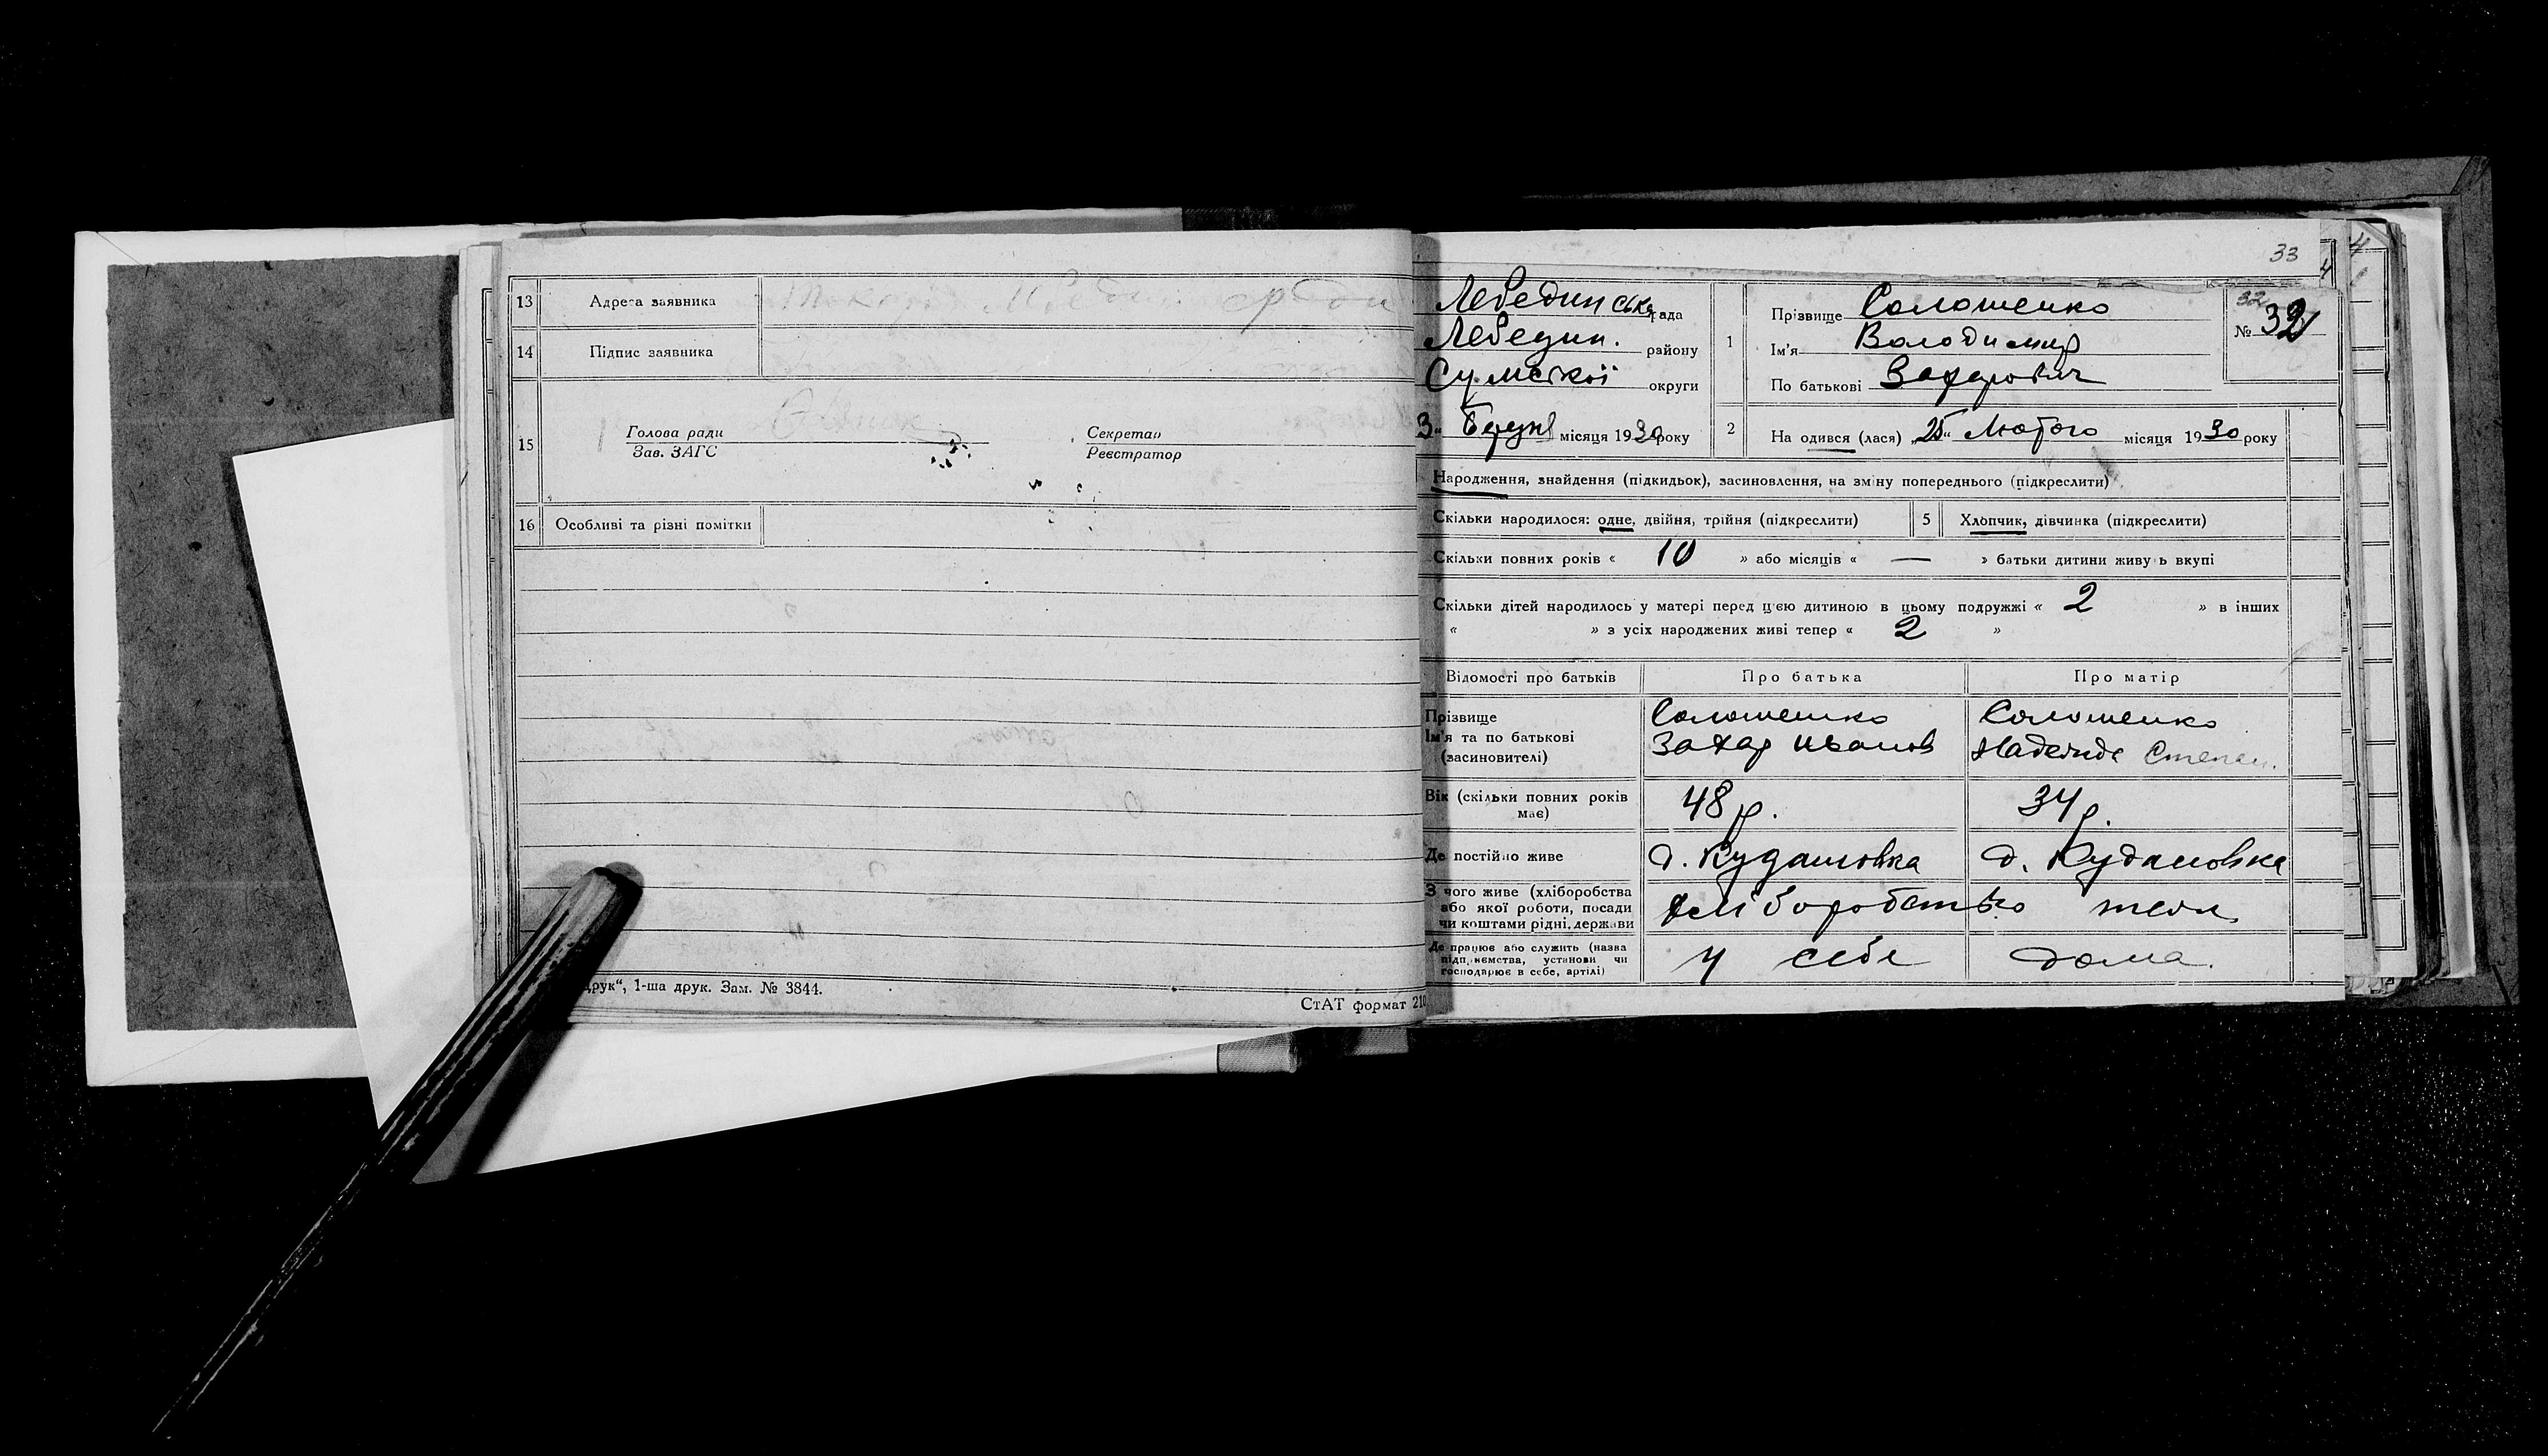 13 Адреса заявника
14 Підпис заявника
15 Голова ради Секретар
Зав. ЗАГС Реєстратор
16 Особливі та різні помітки
друк“, 1-ша друк. Зам. № 3844.
СтАТ формат 210
33
Лебединська рада
Лебедин. району
Сумської округи
3 “ Берузня місяця 1930 року
1 Прізвище Солошенко
Ім'я Володимир
По батькові Захарович
32
№ 32
2 На одився (лася) „25“ Лютого місяця 1930 року
Народження, знайдення (підкидьок), засиновлення, на зміну попереднього (підкреслити)
Скільки народилося: одне, двійня, трійня (підкреслити) 5 Хлопчик, дівчинка (підкреслити)
Скільки повних років « 10 » або місяців « — » батьки дитини живу ь вкупі
Скільки дітей народилось у матері перед цією дитиною в цьому подружжі « 2 » в інших
« » з усіх народжених живі тепер « 2 »
Відомості про батьків Про батька Про матір
Прізвище Солошенко Солошенко
Ім'я та по батькові Захар Иванов Надежда Степан.
(засиновителі)
Вік (скільки повних років має) 48 р. 34 р.
Де постійно живе д. Кудановка д. Кудановка
З чого живе (хліборобства
або якої роботи, посади хліборобство
чи коштами рідні, держави
Де працює або служить (назва
підприємства, установи чи у себе дома.
господарює в себе, артілі)